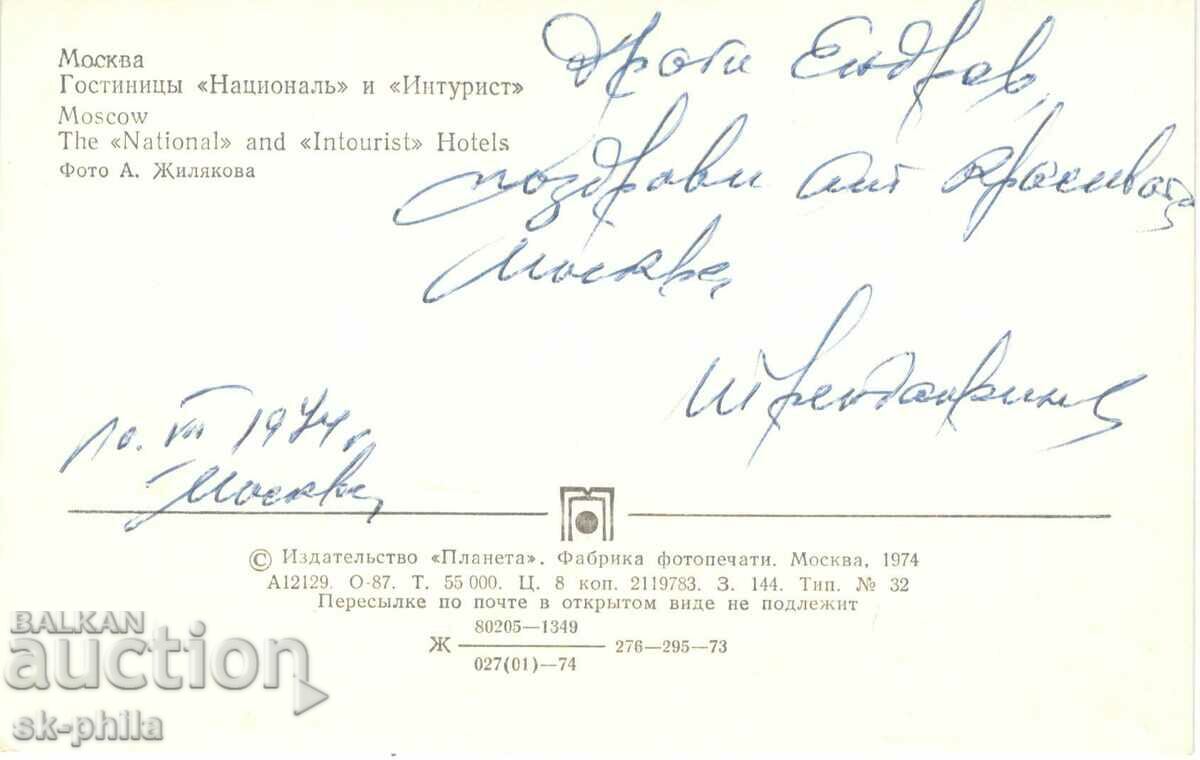 Москва
Гостиницы «Националь» и «Интурист»
Moscow
The «National» and «Intourist» Hotels
Фото А. Жилякова
Драги
поздрави от красивата
Москва
10. VII 1974 г.
Москва
© Издательство «Планета». Фабрика фотопечати. Москва, 1974
А12129. О-87. Т. 55 000. Ц. 8 коп. 2119783. З. 144. Тип. № 32
Пересылке по почте в открытом виде не подлежит
80205—1349
Ж 276—295—73
027(01)—74
BALKAN
auction
sk-phila